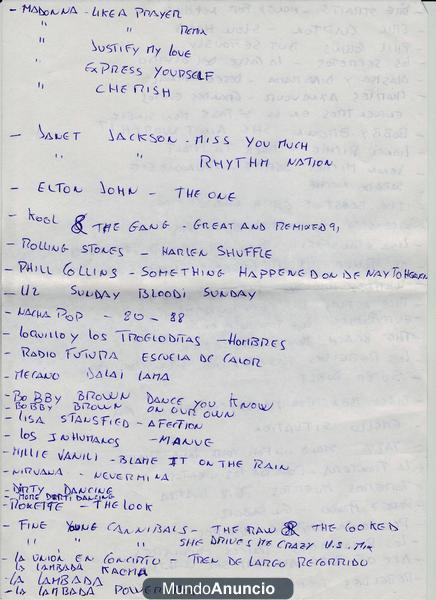 - MADONNA - LIKE A PRAYER
" " REMIX
" JUSTIFY MY LOVE
" EXPRESS YOURSELF
" CHERISH
- JANET JACKSON - MISS YOU MUCH
" " RHYTHM NATION
- ELTON JOHN - THE ONE
- KOOL & THE GANG - GREAT AND REMIXED 91
- ROLLING STONES - HARLEN SHUFFLE
- PHILL COLLINS - SOMETHING HAPPENED ON DE WAY TO HEAVEN
- U2 SUNDAY BLOODI SUNDAY
- NACHA POP - 80 - 88
- LOQUILLO Y LOS TROGLODITAS - HOMBRES
- RADIO FUTURA ESCUELA DE CALOR
- MECANO DALAI LAMA
- BOBBY BROWN DANCE YOU KNOW
- BOBBY BROWN ON OUR OWN
- LISA STANSFIED - AFECTION
- LOS INHUMANOS - MANUE
- MILLIE VANILI - BLAME IT ON THE RAIN
- NIRVANA - NEVERMIND
- DIRTY DANCING
- MORE DIRTI DANCING
- ROXETTE - THE LOOK
- FINE YOUNG CANNIBALS - THE RAW & THE COOKED
" " " SHE DRIVES ME CRAZY U.S. MIX
- LA UNION EN CONCIERTO - TREN DE LARGO RECORRIDO
- LA LAMBADA KAOMA
- LA LAMBADA
- LA LAMBADA POWER
MundoAnuncio